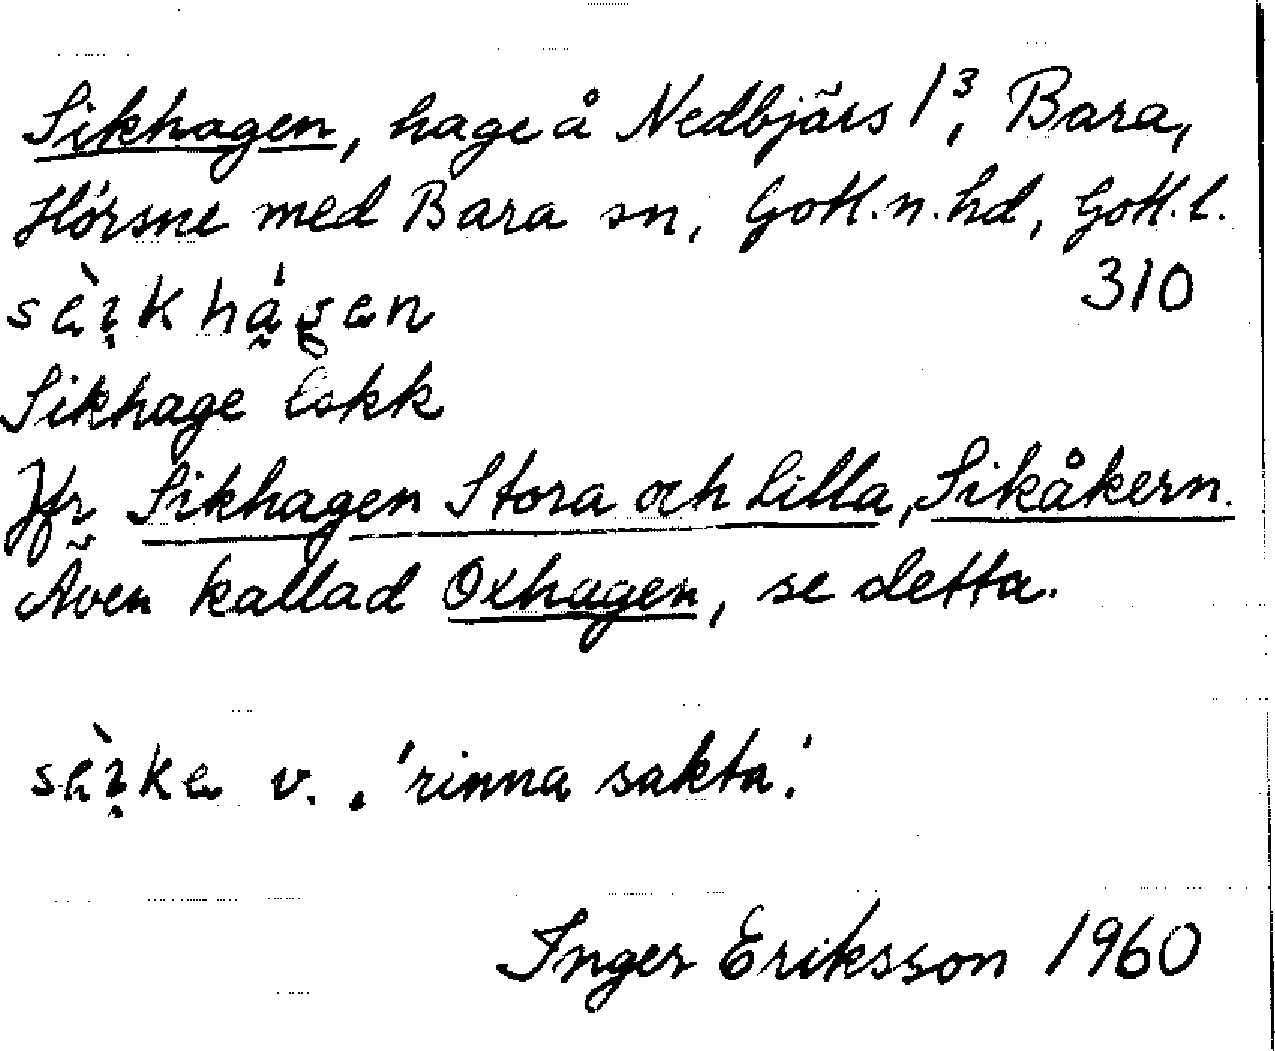 Sikhagen, hage å Nedbjärs 1³, Bara,
Hörsne med Bara sn, Gotl. n. hd, Gotl. l.
310
sèi̯khá̰gen
Sikhage Eskk
Jfr Sikhagen Stora och Lilla, Sikåkern.
Även kallad Oxhagen, se detta.
sèi̯ke v. . 'rinna sakta'.
Inger Eriksson 1960